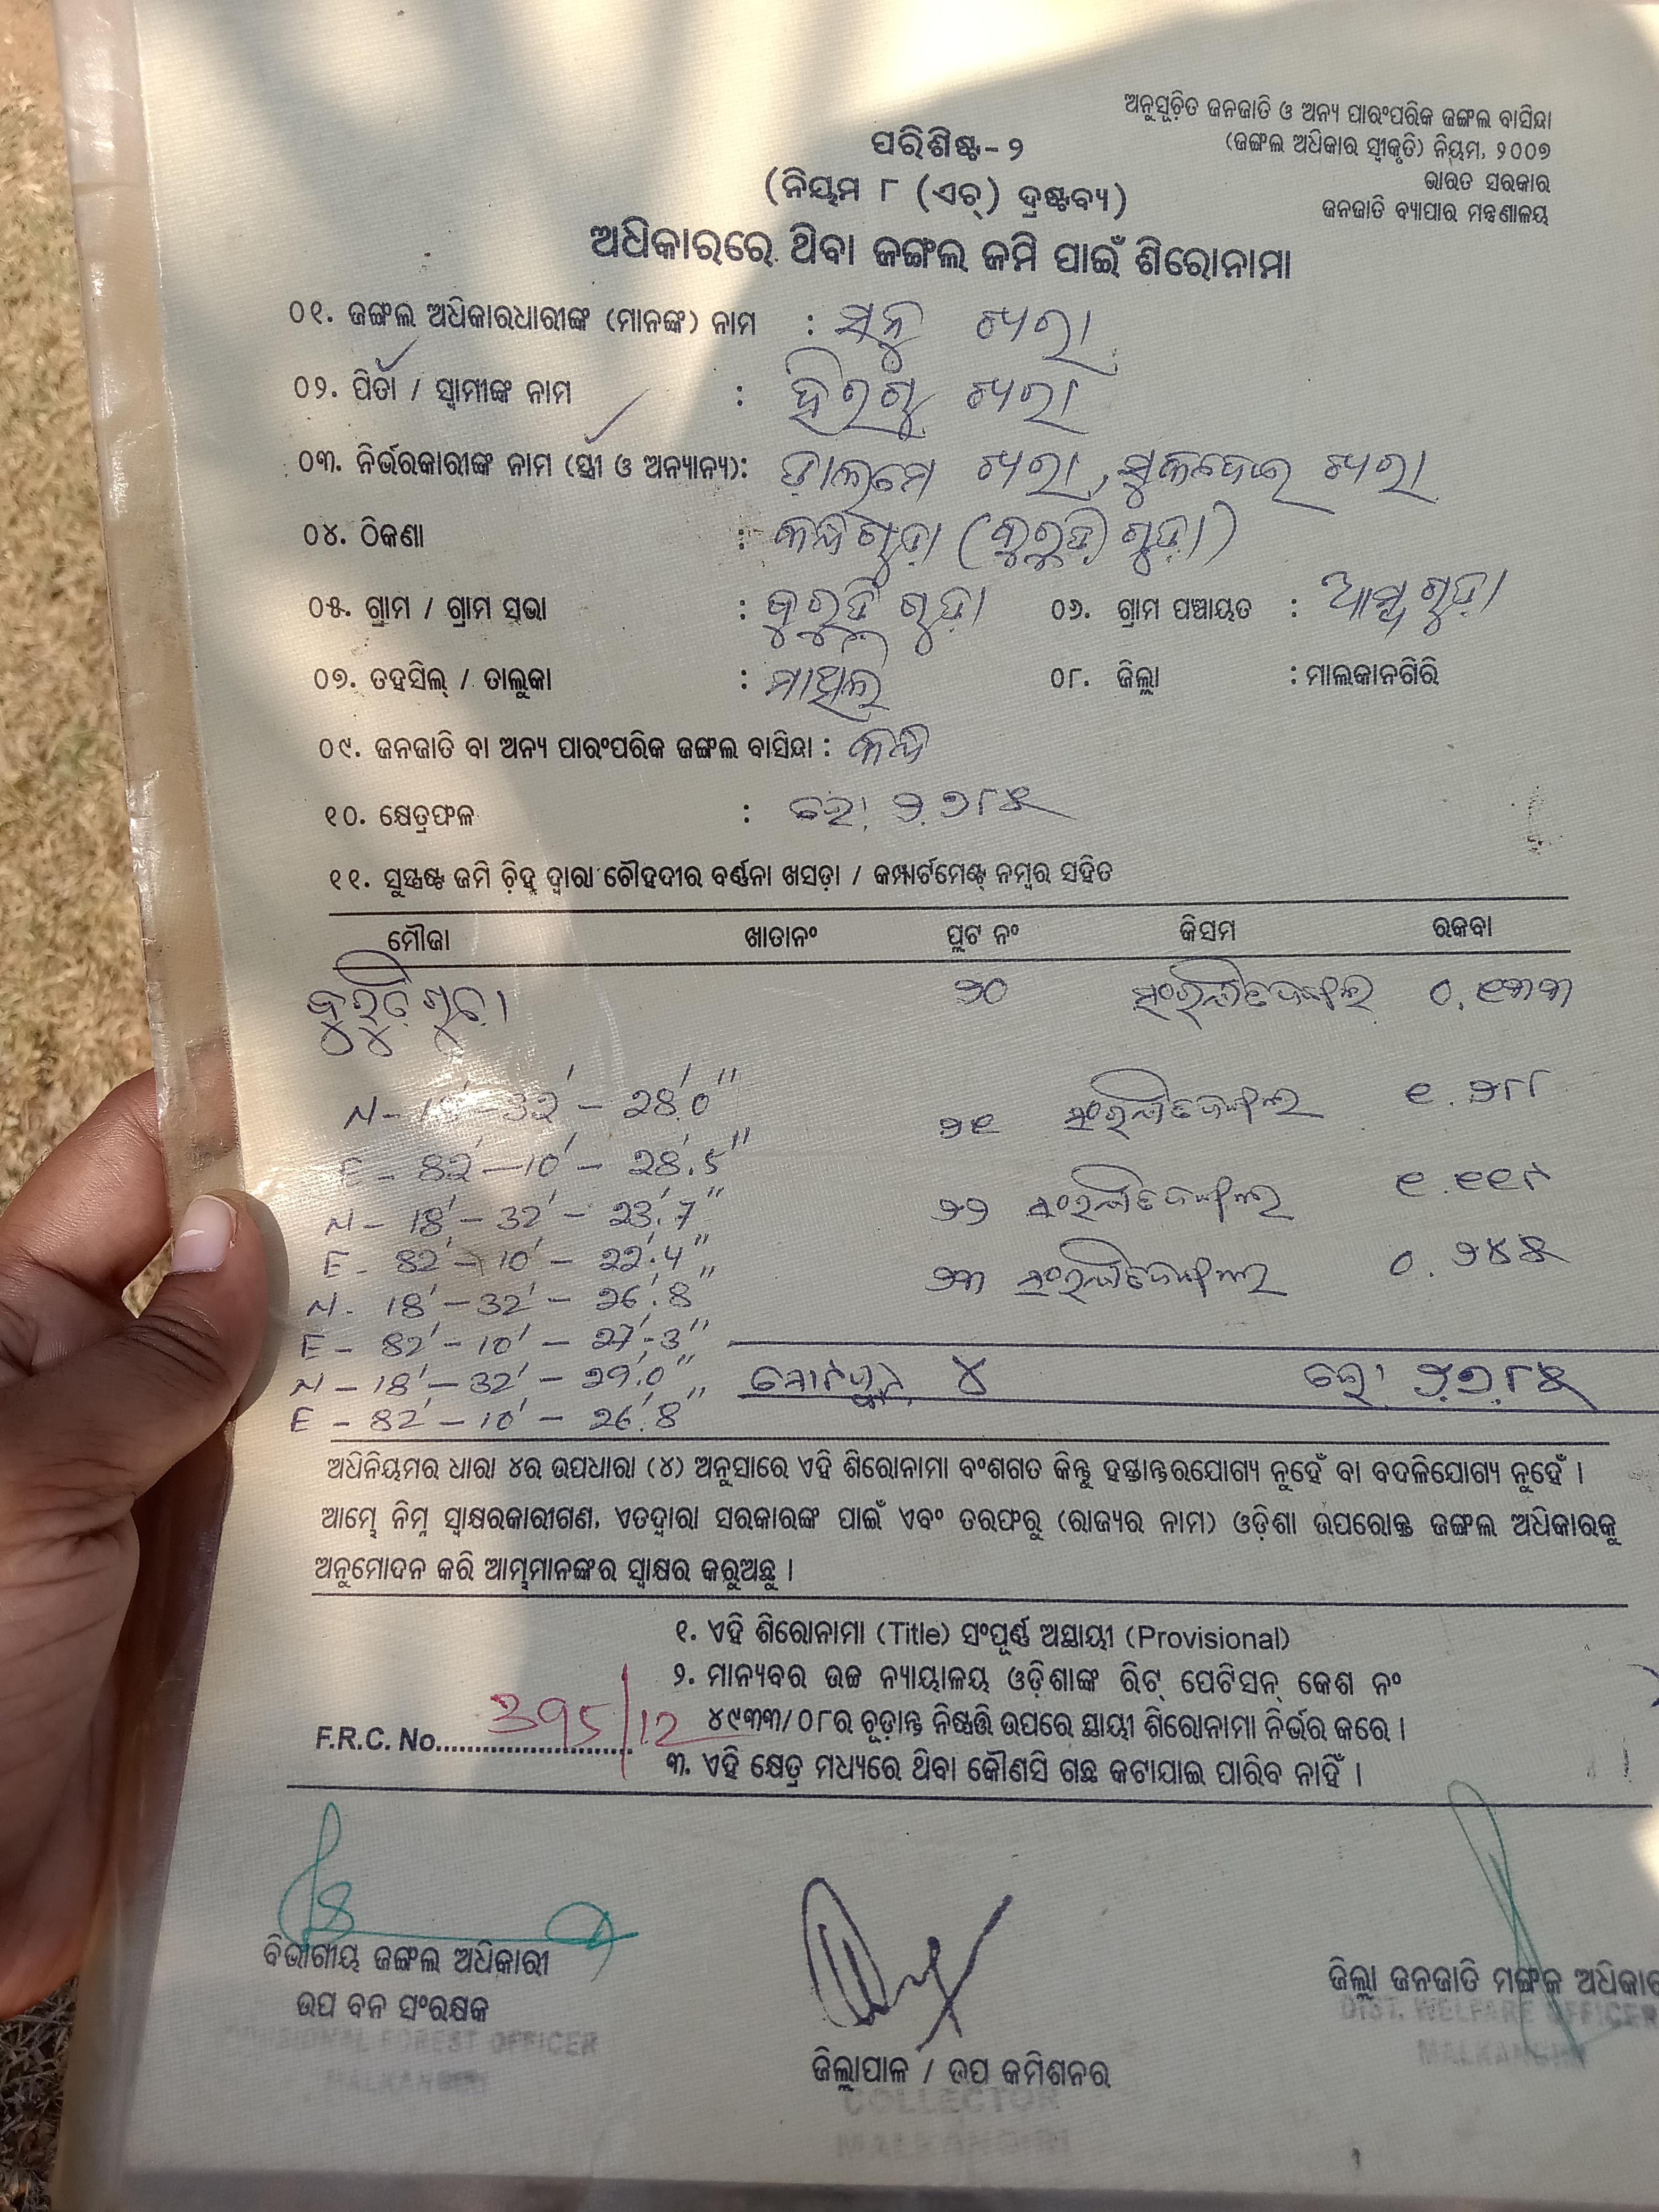 ଅନୁସୂଚିତ ଜନଜାତି ଓ ଅନ୍ୟ ପାରଂପରିକ ଜଙ୍ଗଲ ବାସିନ୍ଦା
(ଜଙ୍ଗଲ ଅଧିକାର ସ୍ୱୀକୃତି) ନିୟମ, ୨୦୦୭
ଭାରତ ସରକାର
ଜନଜାତି ବ୍ୟାପାର ମନ୍ତ୍ରଣାଳୟ
ପରିଶିଷ୍ଟ-୨
(ନିୟମ ୮ (ଏଚ୍) ଦ୍ରଷ୍ଟବ୍ୟ)
ଅଧିକାରରେ ଥିବା ଜଙ୍ଗଲ ଜମି ପାଇଁ ଶିରୋନାମା
୦୧. ଜଙ୍ଗଲ ଅଧିକାରଧାରୀଙ୍କ (ମାନଙ୍କ) ନାମ : ସନୁ ଖରା
୦୨. ପିତା / ସ୍ୱାମୀଙ୍କ ନାମ : ଖରା
୦୩. ନିର୍ଭରକାରୀଙ୍କ ନାମ (ସ୍ତ୍ରୀ ଓ ଅନ୍ୟାନ୍ୟ): ଡାଲମେ ଖରା, ସୁକଦେଇ ଖରା
୦୪. ଠିକଣା : କନ୍ଧଗୁଡ଼ା
୦୫. ଗ୍ରାମ / ଗ୍ରାମ ସଭା : ଗୁଡ଼ା ୦୬. ଗ୍ରାମ ପଞ୍ଚାୟତ : ଆମ୍ବଗୁଡ଼ା
୦୭. ତହସିଲ୍ / ତାଲୁକା : ମାଥିଲି ୦୮. ଜିଲ୍ଲା : ମାଲକାନଗିରି
୦୯. ଜନଜାତି ବା ଅନ୍ୟ ପାରଂପରିକ ଜଙ୍ଗଲ ବାସିନ୍ଦା : କନ୍ଧ
୧୦. କ୍ଷେତ୍ରଫଳ : ୨.୭୮୫
୧୧. ସୁସ୍ପଷ୍ଟ ଜମି ଚ଼ିହ୍ନ ଦ୍ୱାରା ଚୌହଦୀର ବର୍ଣ୍ଣନା ଖସଡ଼ା / କମ୍ପାର୍ଟମେଣ୍ଟ୍ ନମ୍ବର ସହିତ
ମୌଜା ଖାତାନଂ ପ୍ଲଟ ନଂ କିସମ ରକବା
୨୦ ୦.୧୩୩
N - 18' - 32' - 28.0" ୨୧ ୧.୨୮୮
E - 82' - 10' - 28'.5"
N - 18' - 32' - 23'.7" ୨୨ ୧.୧୧୯
E - 82' - 10' - 22'.4"
N - 18' - 32' - 26'.8" ୨୩ ୦.୨୪୫
E - 82' - 10' - 27'.3"
N - 18' - 32' - 29'.0" ୪ ୨.୭୮୫
E - 82' - 10' - 26'.8"
ଅଧିନିୟମର ଧାରା ୪ର ଉପଧାରା (୪) ଅନୁସାରେ ଏହି ଶିରୋନାମା ବଂଶଗତ କିନ୍ତୁ ହସ୍ତାନ୍ତରଯୋଗ୍ୟ ନୁହେଁ ବା ବଦଳିଯୋଗ୍ୟ ନୁହେଁ ।
ଆମ୍ଭେ ନିମ୍ନ ସ୍ୱାକ୍ଷରକାରୀଗଣ, ଏତଦ୍ୱାରା ସରକାରଙ୍କ ପାଇଁ ଏବଂ ତରଫରୁ (ରାଜ୍ୟର ନାମ) ଓଡ଼ିଶା ଉପରୋକ୍ତ ଜଙ୍ଗଲ ଅଧିକାରକୁ
ଅନୁମୋଦନ କରି ଆମ୍ଭମାନଙ୍କର ସ୍ୱାକ୍ଷର କରୁଅଛୁ ।
୧. ଏହି ଶିରୋନାମା (Title) ସଂପୂର୍ଣ୍ଣ ଅସ୍ଥାୟୀ (Provisional)
୨. ମାନ୍ୟବର ଉଚ୍ଚ ନ୍ୟାୟାଳୟ ଓଡ଼ିଶାଙ୍କ ରିଟ୍ ପେଟିସନ୍ କେଶ ନଂ
୪୯୩୩/୦୮ର ଚୂଡ଼ାନ୍ତ ନିଷ୍ପତ୍ତି ଉପରେ ସ୍ଥାୟୀ ଶିରୋନାମା ନିର୍ଭର କରେ ।
F.R.C. No. 395/12
୩. ଏହି କ୍ଷେତ୍ର ମଧ୍ୟରେ ଥିବା କୌଣସି ଗଛ କଟାଯାଇ ପାରିବ ନାହିଁ ।
ବିଭାଗୀୟ ଜଙ୍ଗଲ ଅଧିକାରୀ
ଉପ ବନ ସଂରକ୍ଷକ
DIVISIONAL FOREST OFFICER
MALKANGIRI
ଜିଲ୍ଲାପାଳ / ଉପ କମିଶନର
COLLECTOR
MALKANGIRI
ଜିଲ୍ଲା ଜନଜାତି ମଙ୍ଗଳ
DIST. WELFARE OFFICER
MALKANGIRI